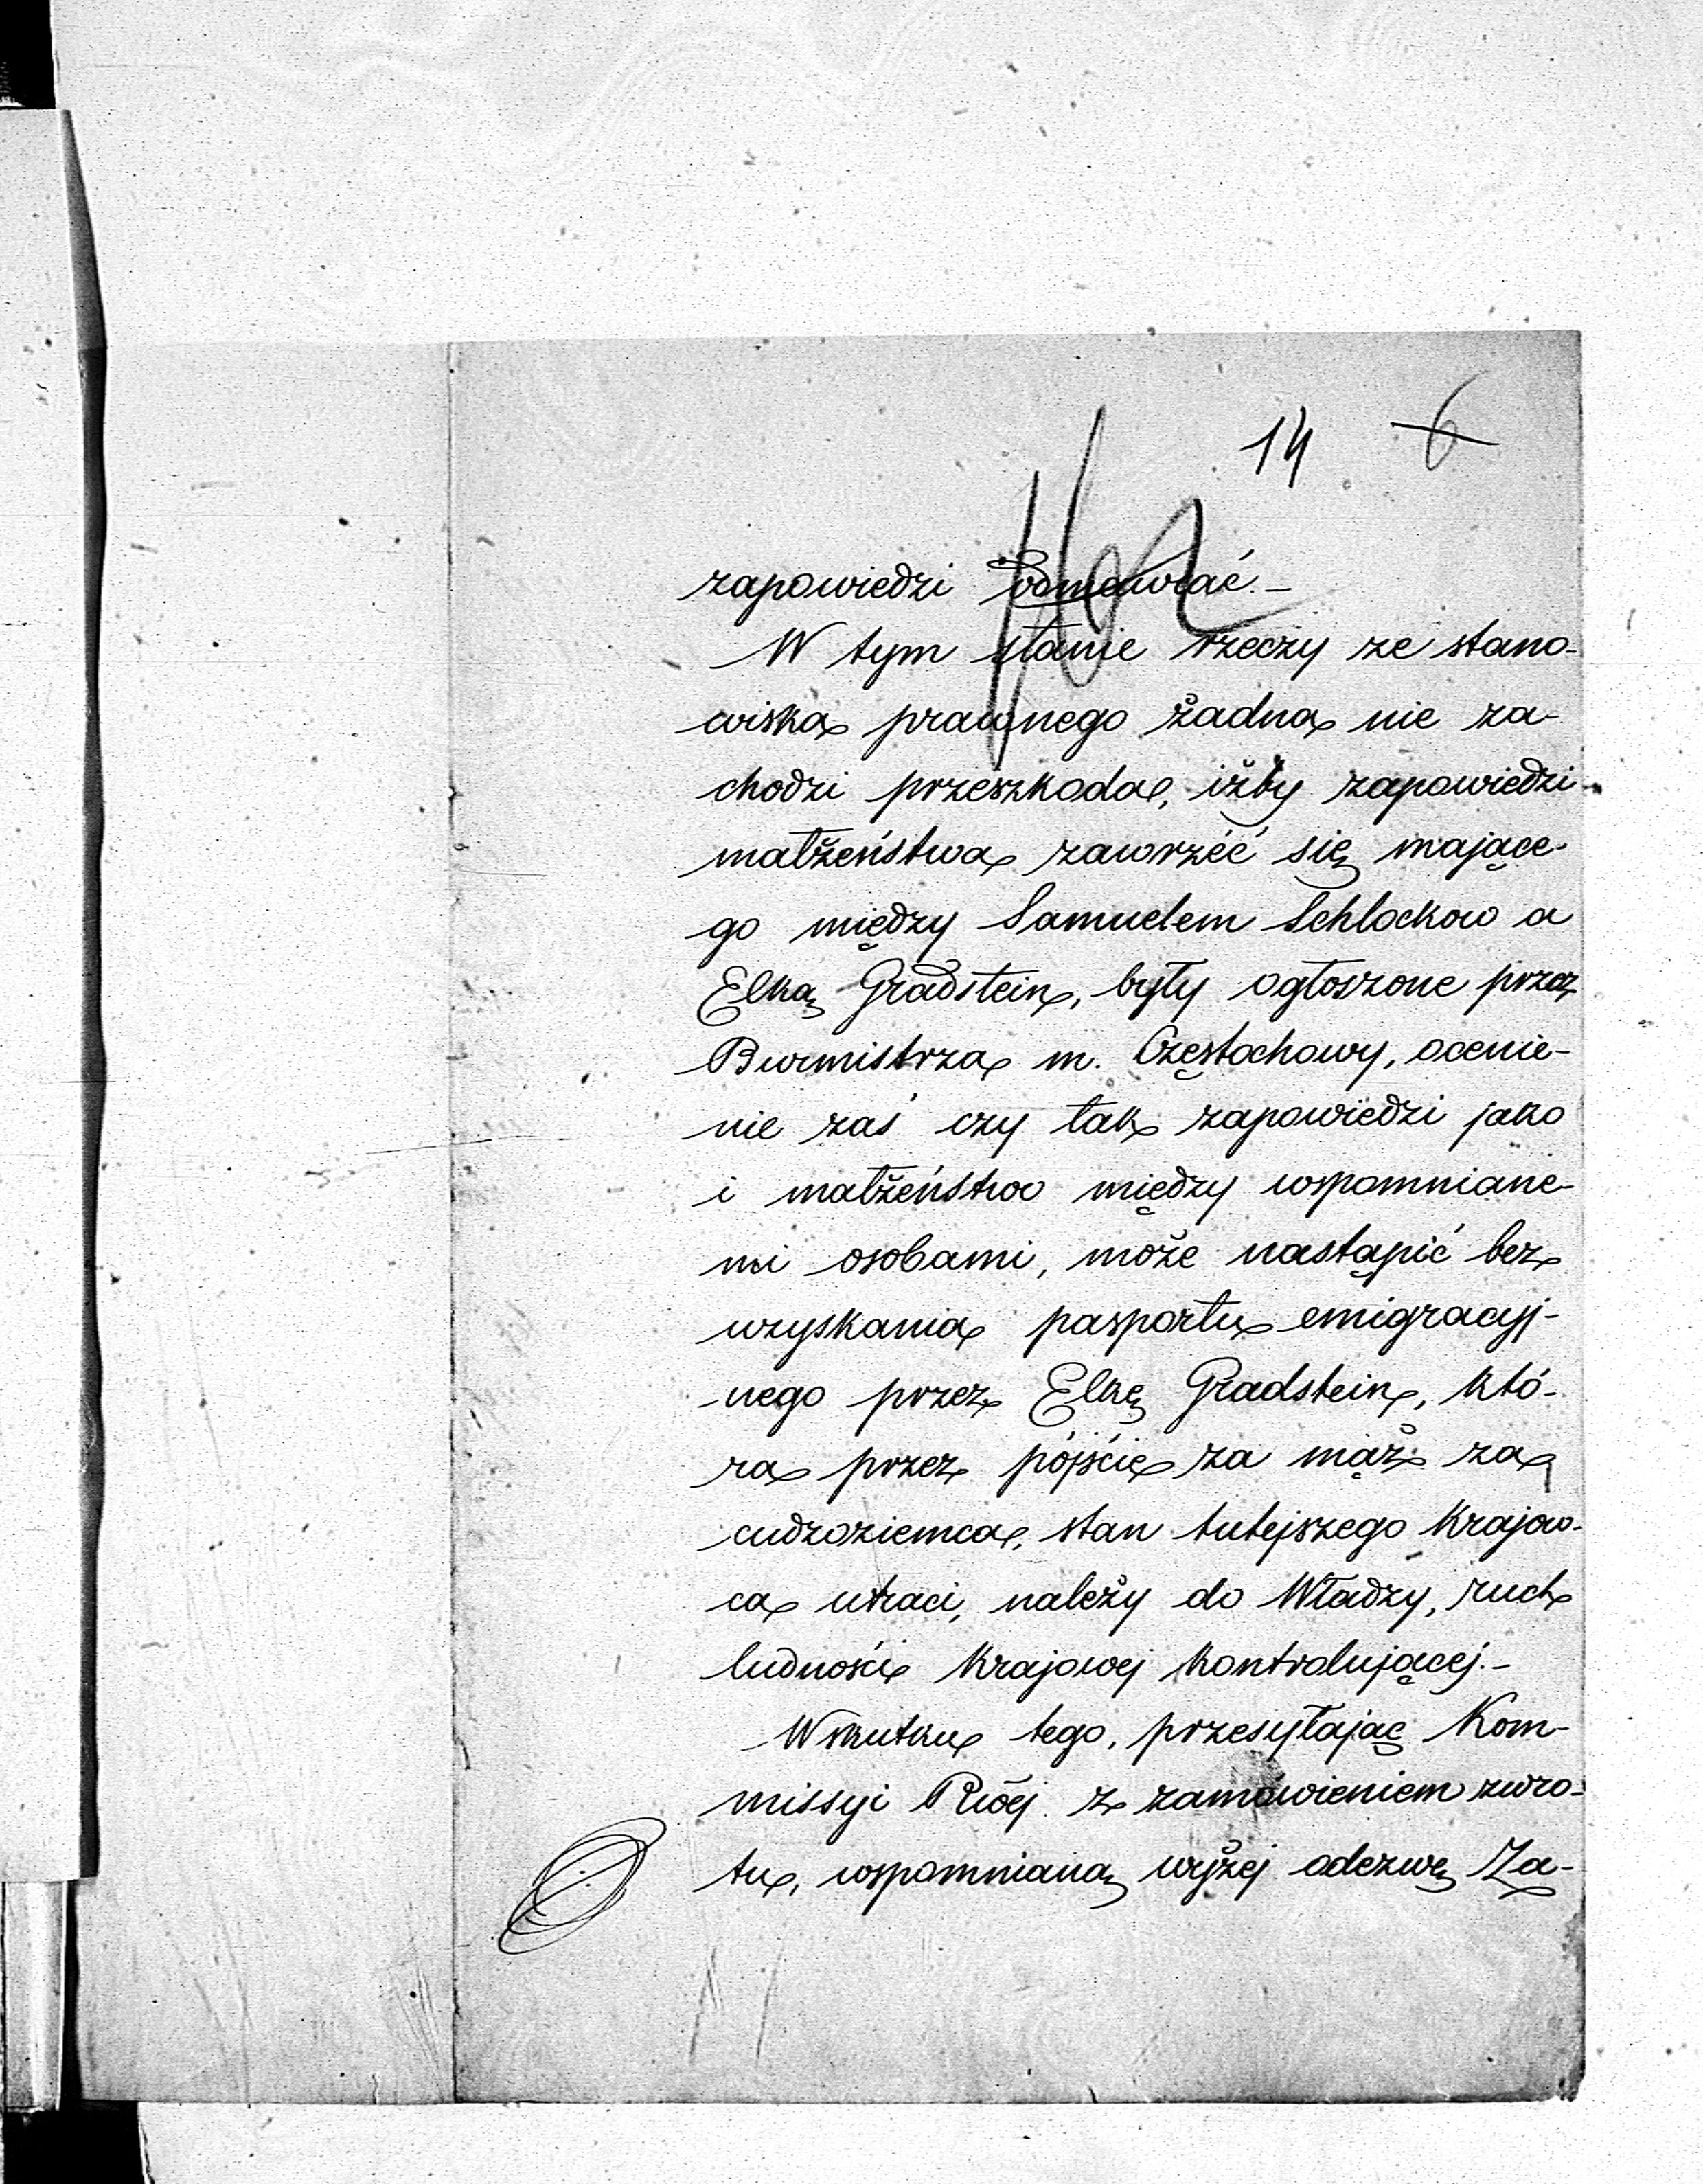 14 6
zapowiedzi odmawiać.-
W tym stanie rzeczy ze stano-
wiska prawnego żadna nie za-
chodzi przeszkoda, iżby zapowiedzi
małżeństwa zawrzéć się mające-
go między Samuelem Schlockow a
Elką Gradstein, były ogłoszone przez
Burmistrza m. Częstochowy, ocenie-
nie zaś czy tak zapowiedzi jako
i małżeństwo między wspomniane-
mi osobami, może nastąpić bez
uzyskania pasportu emigracyj-
nego przez Elkę Gradstein, któ-
ra przez pójście za mąż za
cudzoziemca, stan tutejszego Krajow-
ca utraci, należy do Władzy, ruch
ludności Krajowej kontrolującéj.-
Wskutku tego, przesyłając Kom-
missyi Rwéj z zamówieniem zwro-
tu, wspomnianą wyżej odezwę Za-